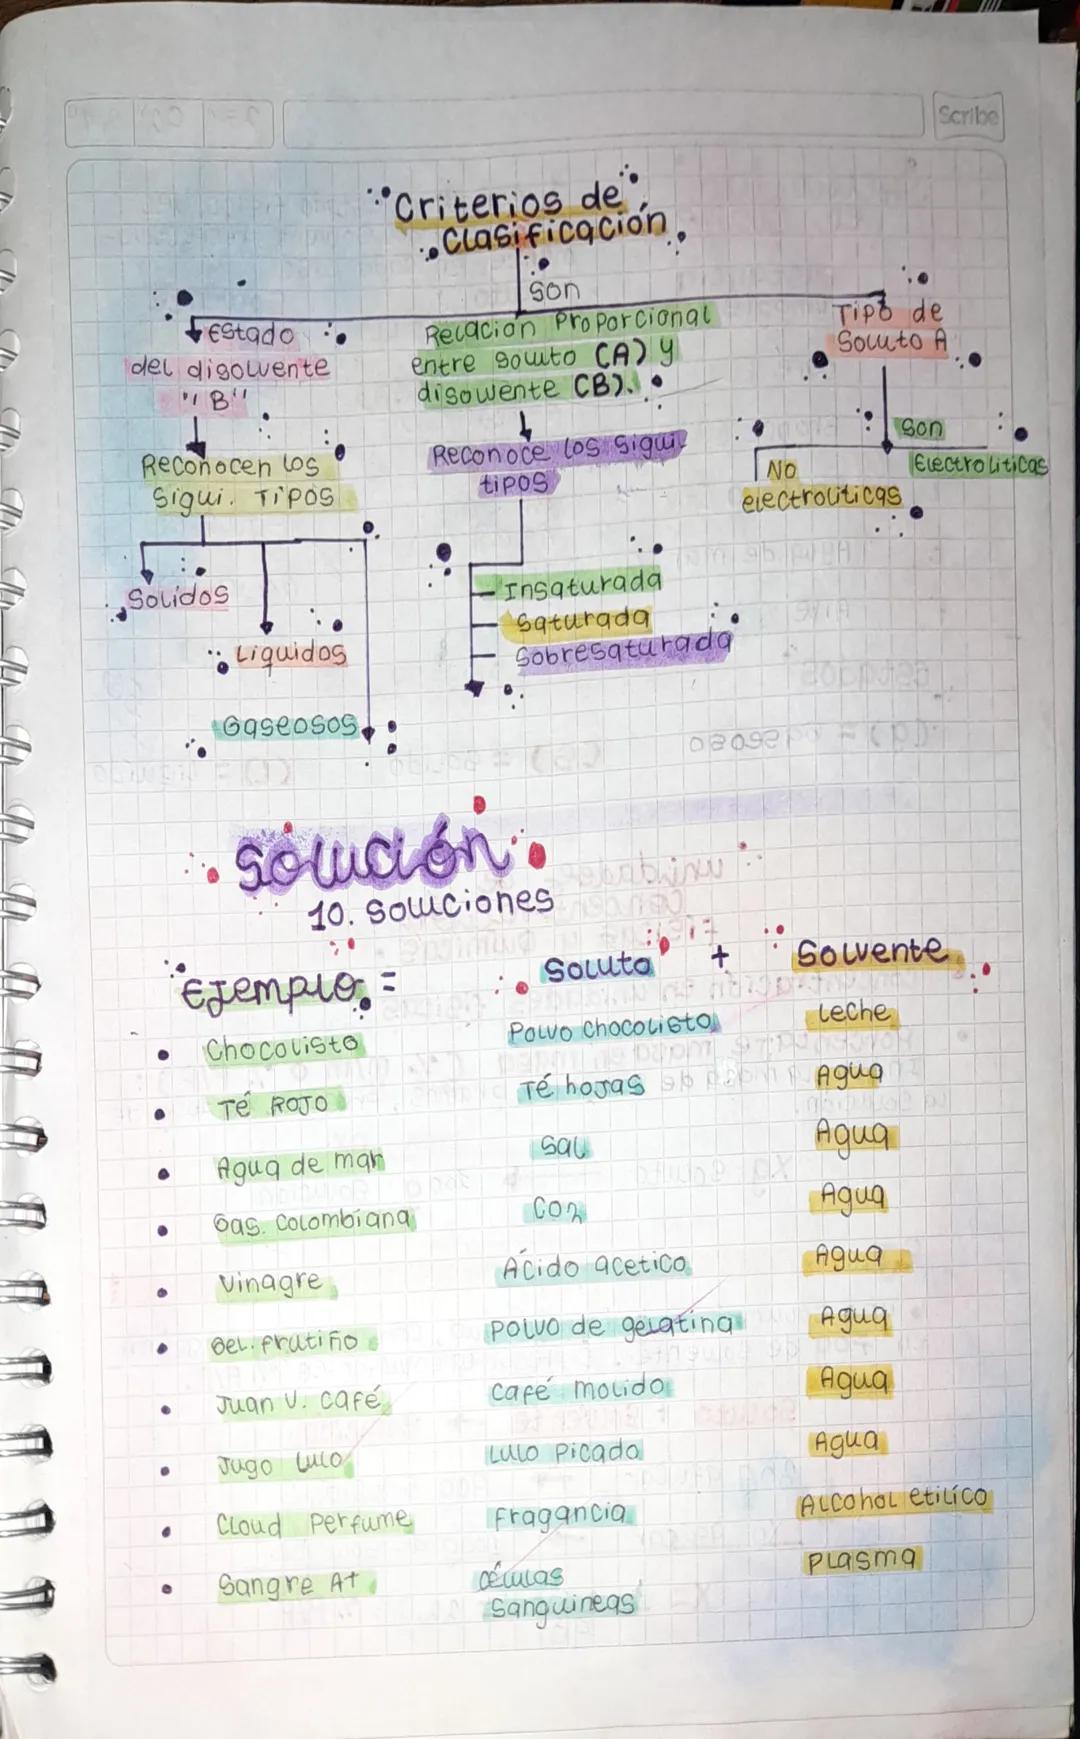 Scribe
Criterios de
Clasificación
son
Estado
del disolvente
"B"
Reconocen los
sigui. Tipos
Solidos
Liquidos
Gaseosos
Relacion Proporcional
entre soluto (A) y
disolvente (B).
Reconoce los sigui
tipos
Insaturada
Saturada
Sobresaturada
Tipo de
Soluto A
Son
No
electroliticas
Electroliticas
Solución
10. Soluciones
Ejemplo = Soluto + Solvente
Chocolisto Polvo chocolisto Leche
Té Rojo Té hojas Agua
Agua de mar Sal Agua
Gas. Colombiana CO2 Agua
Vinagre Ácido acetico Agua
Gel. frutiño Polvo de gelatina Agua
Juan V. café Café molido Agua
Jugo Lulo Lulo Picado Agua
Cloud Perfume Fragancia Alcohol etilíco
Sangre A+ células Plasma
Sanguineas